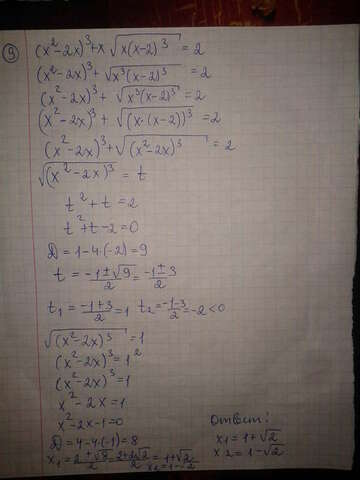 9) (x²-2x)³+x√(x(x-2)³) = 2
(x²-2x)³+√(x³(x-2)³) = 2
(x²-2x)³+√(x³(x-2)³) = 2
(x²-2x)³+√((x·(x-2))³) = 2
(x²-2x)³+√((x²-2x)³) = 2
√((x²-2x)³) = t
t²+t=2
t²+t-2=0
D=1-4·(-2)=9
t = (-1±√9)/2 = (-1±3)/2
t₁ = (-1+3)/2 = 1 t₂ = (-1-3)/2 = -2 < 0
√((x²-2x)³) = 1
(x²-2x)³ = 1²
(x²-2x)³ = 1
x²-2x=1
x²-2x-1=0
D=4-4·(-1)=8
x₁ = (2±√8)/2 = (2±2√2)/2 = 1+√2
x₂ = 1-√2
Ответ:
x₁ = 1+√2
x₂ = 1-√2